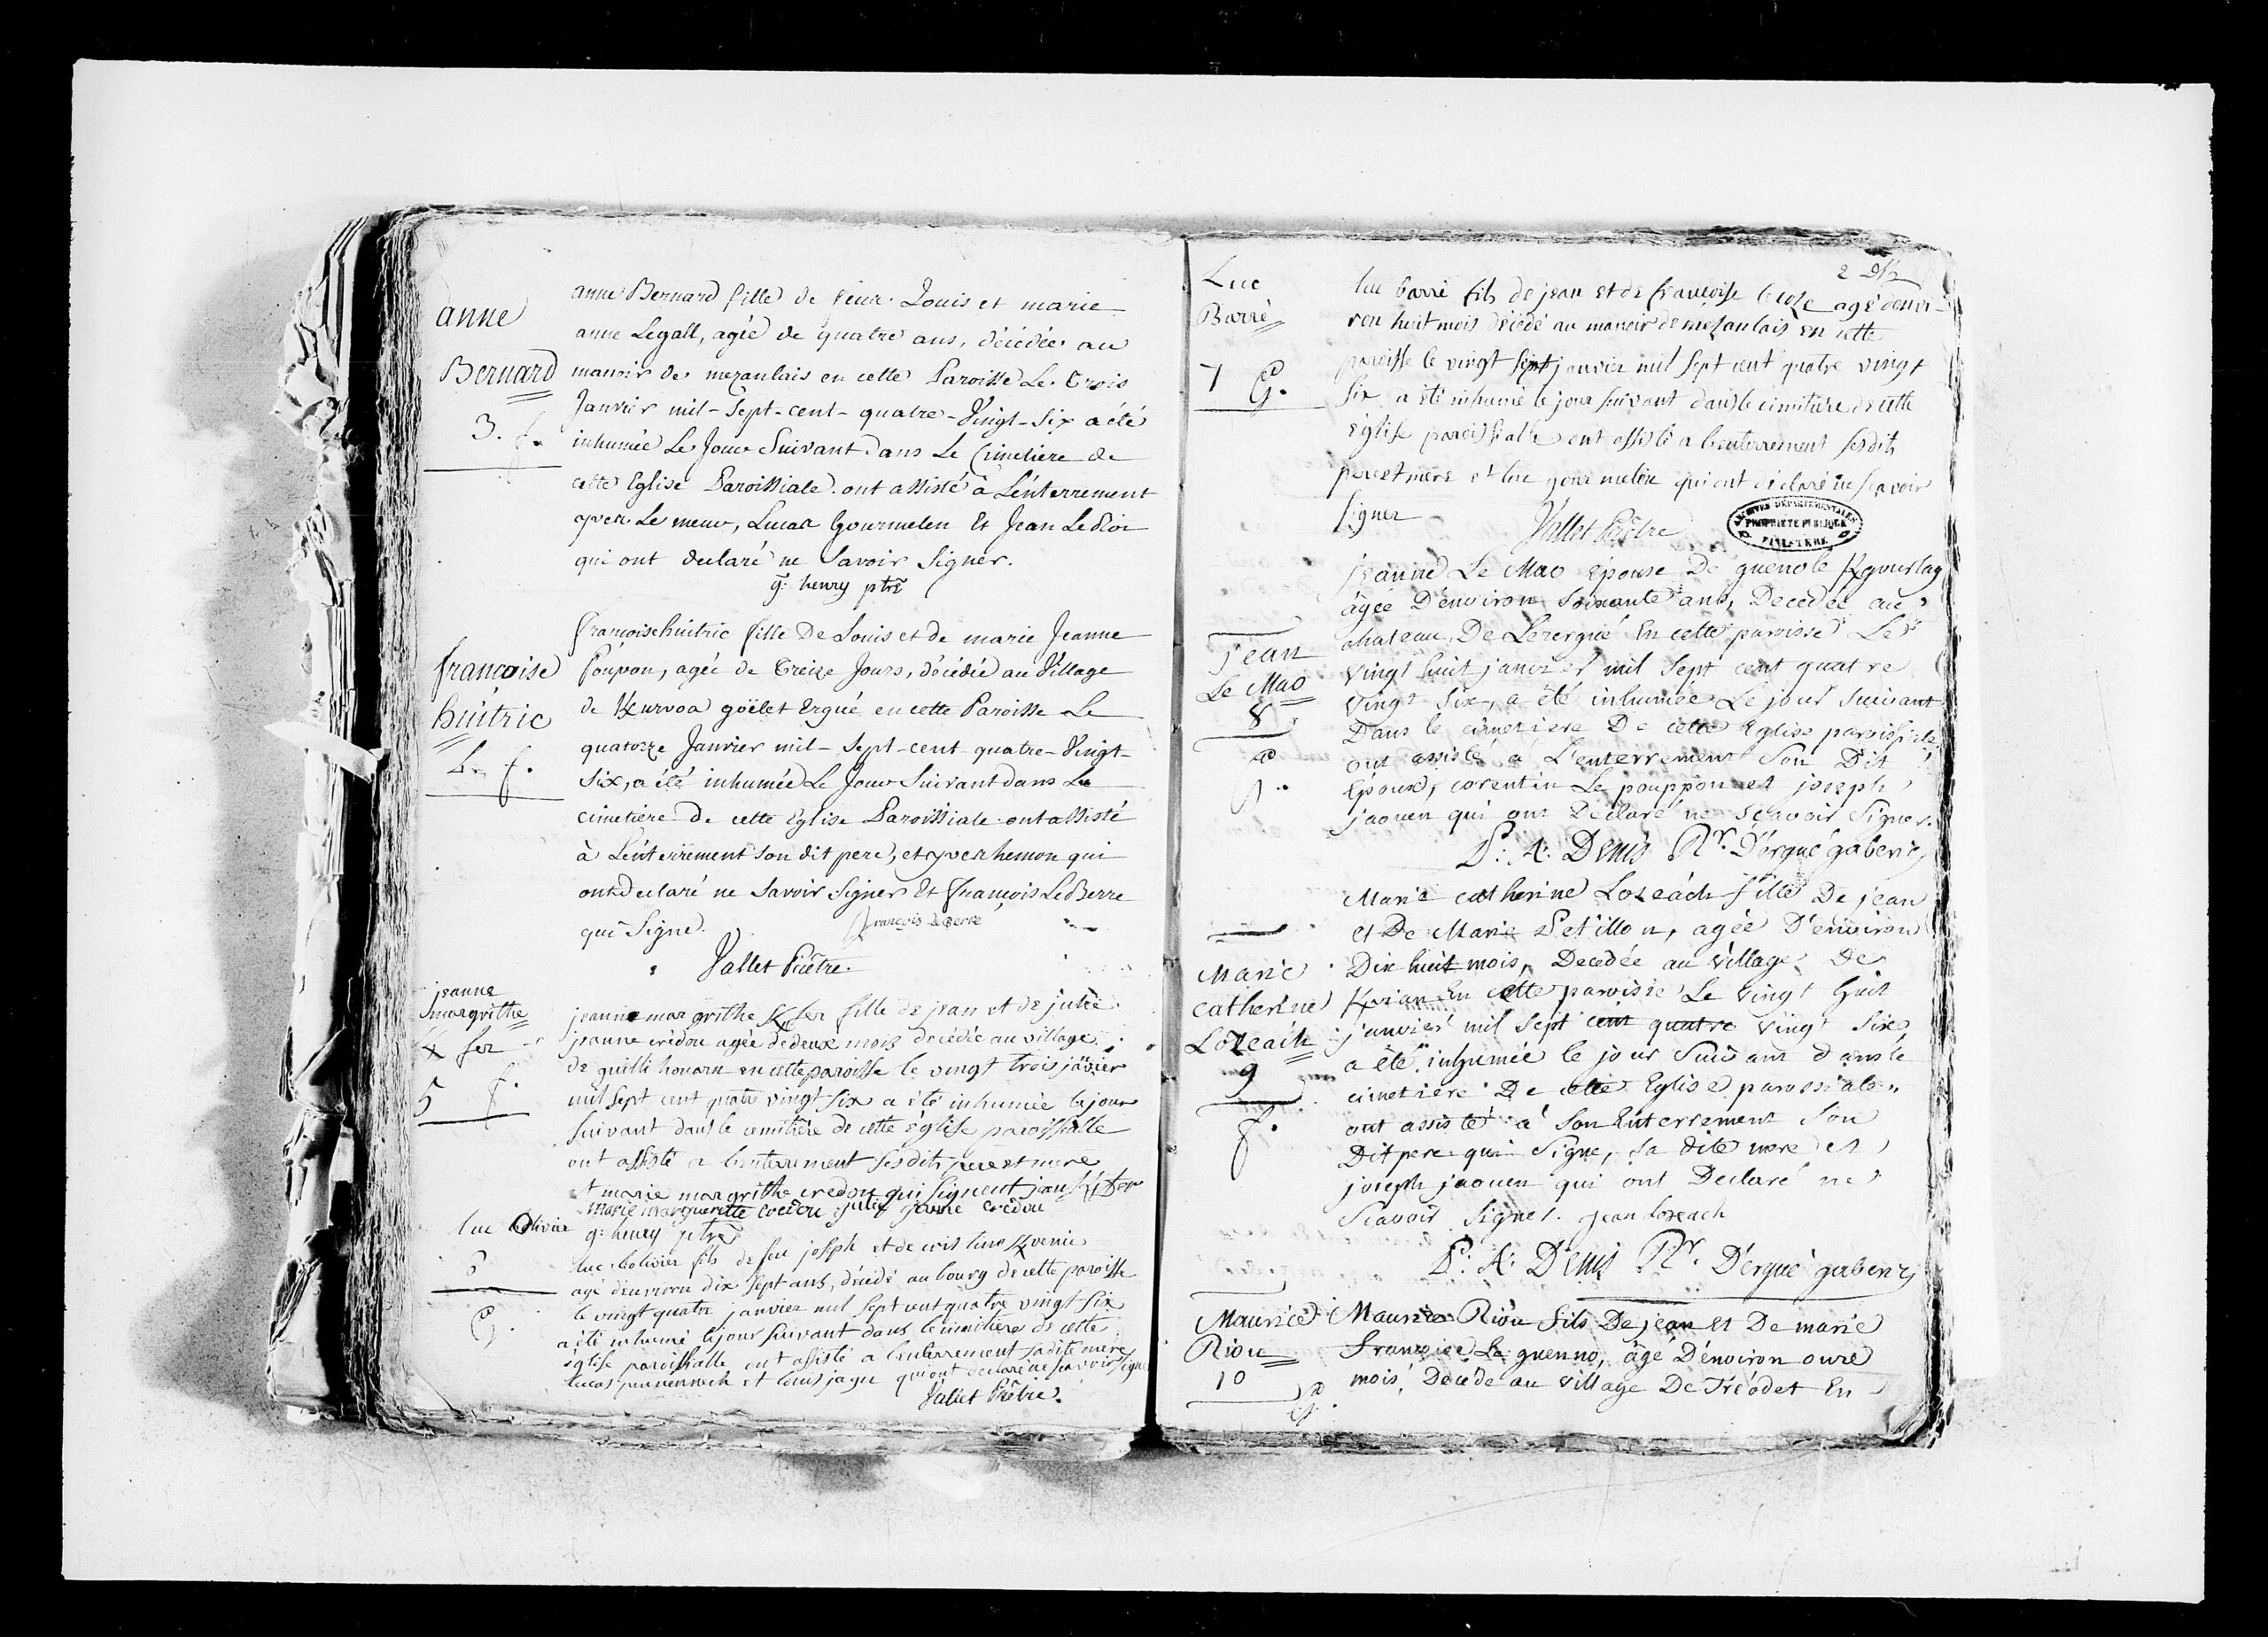 anne
Bernard
3. f.
anne Bernard fille de feux Louis et marie
anne Legall, agée de quatre ans, décédée au
manoir de mezanlais en cette Paroisse Le trois
Janvier mil-Sept-cent-quatre-Vingt-Six a été
inhumée Le Jour Suivant dans Le Cimetiere de
cette Eglise Paroissiale. ont assisté à L'enterrement
yven Le meur, Lucas Gourmelen Et Jean Le
qui ont declaré ne Savoir Signer.
g: henry ptre
françoise
huitric
4. f.
françoise huitric fille De Louis et de marie Jeanne
Poupon, agée de treize Jours, décédée au Village
de Kurvoa goëlet Ergué en cette Paroisse Le
quatorze Janvier mil-Sept-cent quatre-Vingt-
Six, a été inhumée Le Jour Suivant dans Le
cimetiere de cette Eglise Paroissiale ont assisté
à L'enterrement son dit pere, et yven hemon qui
ont declaré ne Savoir Signer Et françois Le Berre
qui Signe. françois Le Berre
Vallet Prêtre.
jeanne
margrithe
K fer
5 f.
jeanne margrithe K fer fille de jean et de julie
jeanne crédou agée de deux mois decédée au village
de guilli houarn en cette paroisse le vingt trois jãvier
mil sept cent quatre vingt six a été inhumée le jour
suivant dans le cemitière de cette église paroissialle
ont assisté a l'enterrement ses dits pere et mere
et marie margrithe credou qui signent jean K/fer
marie margueritte credou julie jeanne credou
g: henry ptre
luc Olivier
6
G.
luc olivier fils de feu joseph et de cristine Kvenic
agé d'environ dix sept ans, décédé au bourg de cette paroisse
le vingt quatre janvier mil sept cent quatre vingt six
a été inhumé le jour suivant dans le cimitière de cette
église paroissialle ont assisté a l'enterrement sa dite mere
lucas et louis jagu qui ont declaré ne scavoir signer
Vallet Prêtre.
2
Luc
Barré
7 G.
luc barré fils de jean et de françoise le coze agé d'envi-
ron huit mois décédé au manoir de mezanlais en cette
paroisse le vingt sept janvier mil sept cent quatre vingt
six a été inhumé le jour suivant dans le cimitière de cette
église paroissialle ont assisté a l'enterrement ses dits
pere et mere et luc gourmelen qui ont declaré ne scavoir
signer
Vallet Prêtre
ARCHIVES DÉPARTEMENTALES
PROPRIÉTÉ PUBLIQUE
FINISTÈRE
jean
Le Mao
8
jeanne Le Mao epouse De guenolé Kgourlay
âgée D'environ soixante ans, Decedée au
chateau De Lezergué En cette paroisse Le
vingt huit janvier mil sept cent quatre
vingt six, a été inhumée Le jour suivant
Dans le cimetiere De cette Eglise paroissiale
ont assisté a L'enterrement Son Dit
Epoux, corentin Le pouppon et joseph
jaouen qui ont Declaré ne sçavoir Signer.
P: A: Denis Rr. D'ergué gaberic,
Marie
catherine
Lozeach
9
f.
Marie catherine Lozeach fille De jean
et De Marie Petillon, agée D'environ
Dix huit mois, Decedée au village De
En cette paroisse Le vingt huit
janvier mil sept cent quatre vingt six,
a été inhumée le jour suivant dans le
cimetiere De cette Eglise paroissiale.
ont assisté à Son Enterrement Son
Dit pere qui Signe, sa dite mere et
joseph jaouen qui ont Declaré ne
Scavoir Signer. jean Lozeach
P: A: Denis Rr. D'ergué gaberic
Maurice
Riou
10
G.
Maurice Riou fils De jean et De marie
Françoise Le guenno, âgé D'environ onze
mois, Decedé au village De Tréodet En